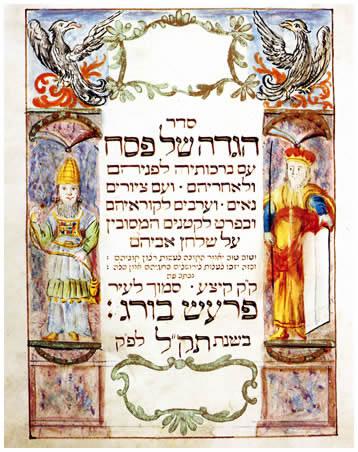 סדר
הגדה של פסח
עם ברכותיה לפניהם
ולאחריהם · ועם ציורים
נאים · וערבים לקוראיהם
ובפרט לקטנים המסובין
על שלחן אביהם
וטוב
ק״ק קיצע · סמוך לעיר
פרעש בורג :
בשנת תק״ל לפק